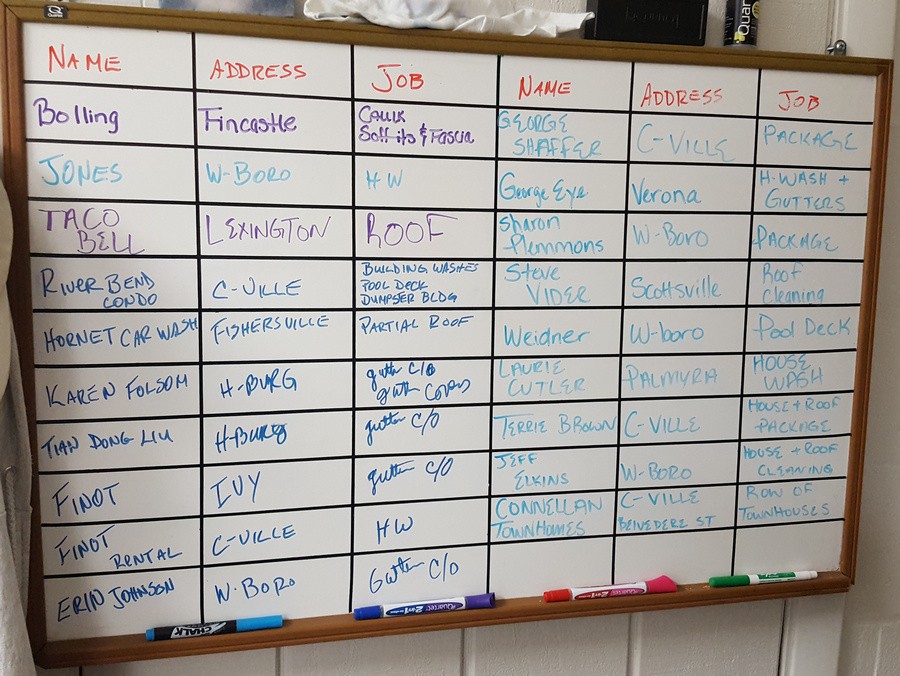 NAME ADDRESS JOB NAME ADDRESS JOB
Bolling Fincastle CAULK
Soffits & Fascia
GEORGE
SHAFFER C-VILLE PACKAGE
JONES W-BORO HW George Eye Verona H. WASH +
GUTTERS
TACO
BELL LEXINGTON ROOF Sharon
Plemmons W-Boro PACKAGE
RIVER BEND
CONDO C-VILLE BUILDING WASHES
POOL DECK
DUMPSER BLDG
Steve
VIDER Scottsville Roof
Cleaning
HORNET CAR WASH FISHERSVILLE PARTIAL ROOF Weidner W-boro Pool Deck
KAREN FOLSOM H-BURG gutter c/o
gutter
LAURIE
CUTLER PALMYRA HOUSE
WASH
TIAN DONG LIU H-Burg gutter c/o TERRIE BROWN C-VILLE HOUSE + ROOF
PACKAGE
FINOT IVY gutter c/o JEFF
ELKINS W-BORO HOUSE + ROOF
CLEANING
FINOT
RENTAL C-VILLE HW CONNELLAN
TOWNHOMES C-VILLE
BELVEDERE ST ROW OF
TOWNHOUSES
ERIN JOHNSON W-BORO Gutter c/o
CHALK
Quartet
Quartet